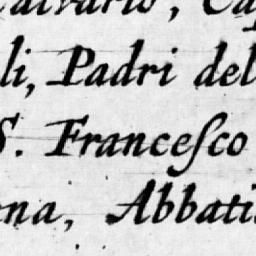 alvario, Ca
li, Padri del
S. Franceſco
ena, Abbati